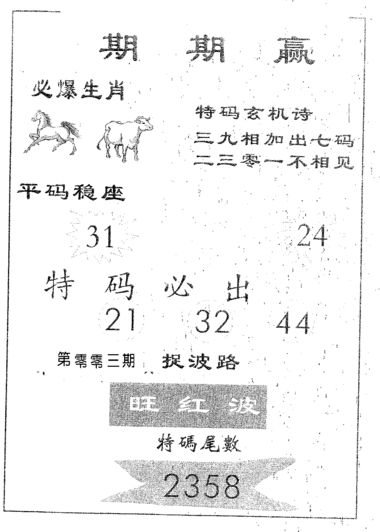 期期赢
必爆生肖
特码玄机诗
三九相加出七码
二三零一不相见
平码稳座
31
24
特码必出
21 32 44
第零零三期 捉波路
旺红波
特碼尾數
2358